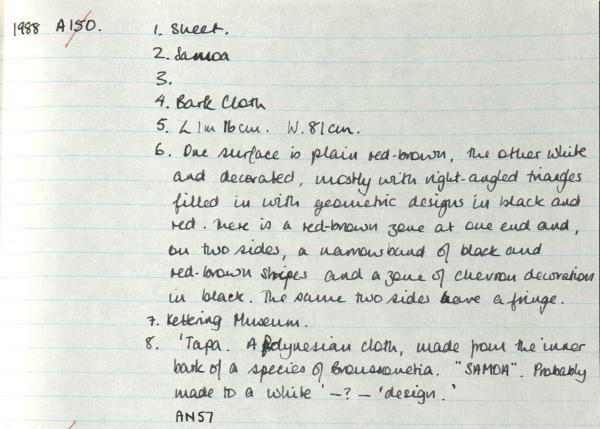 1988 A150. 1. Sheet.
2. Samoa
3.
4. Bark Cloth
5. L 1m 16cm. W. 81cm.
6. One surface is plain red-brown, the other white
and decorated, mostly with right-angled triangles
filled in with geometric designs in black and
red. There is a red-brown zone at one end and,
on two sides, a narrow band of black and
red-brown stripes and a zone of chevron decoration
in black. The same two sides have a fringe.
7. Kettering Museum.
8. 'Tapa. A Polynesian cloth, made from the inner
bark of a species of Broussonetia. "SAMOA". Probably
made to a white' -?- 'design.'
AN57